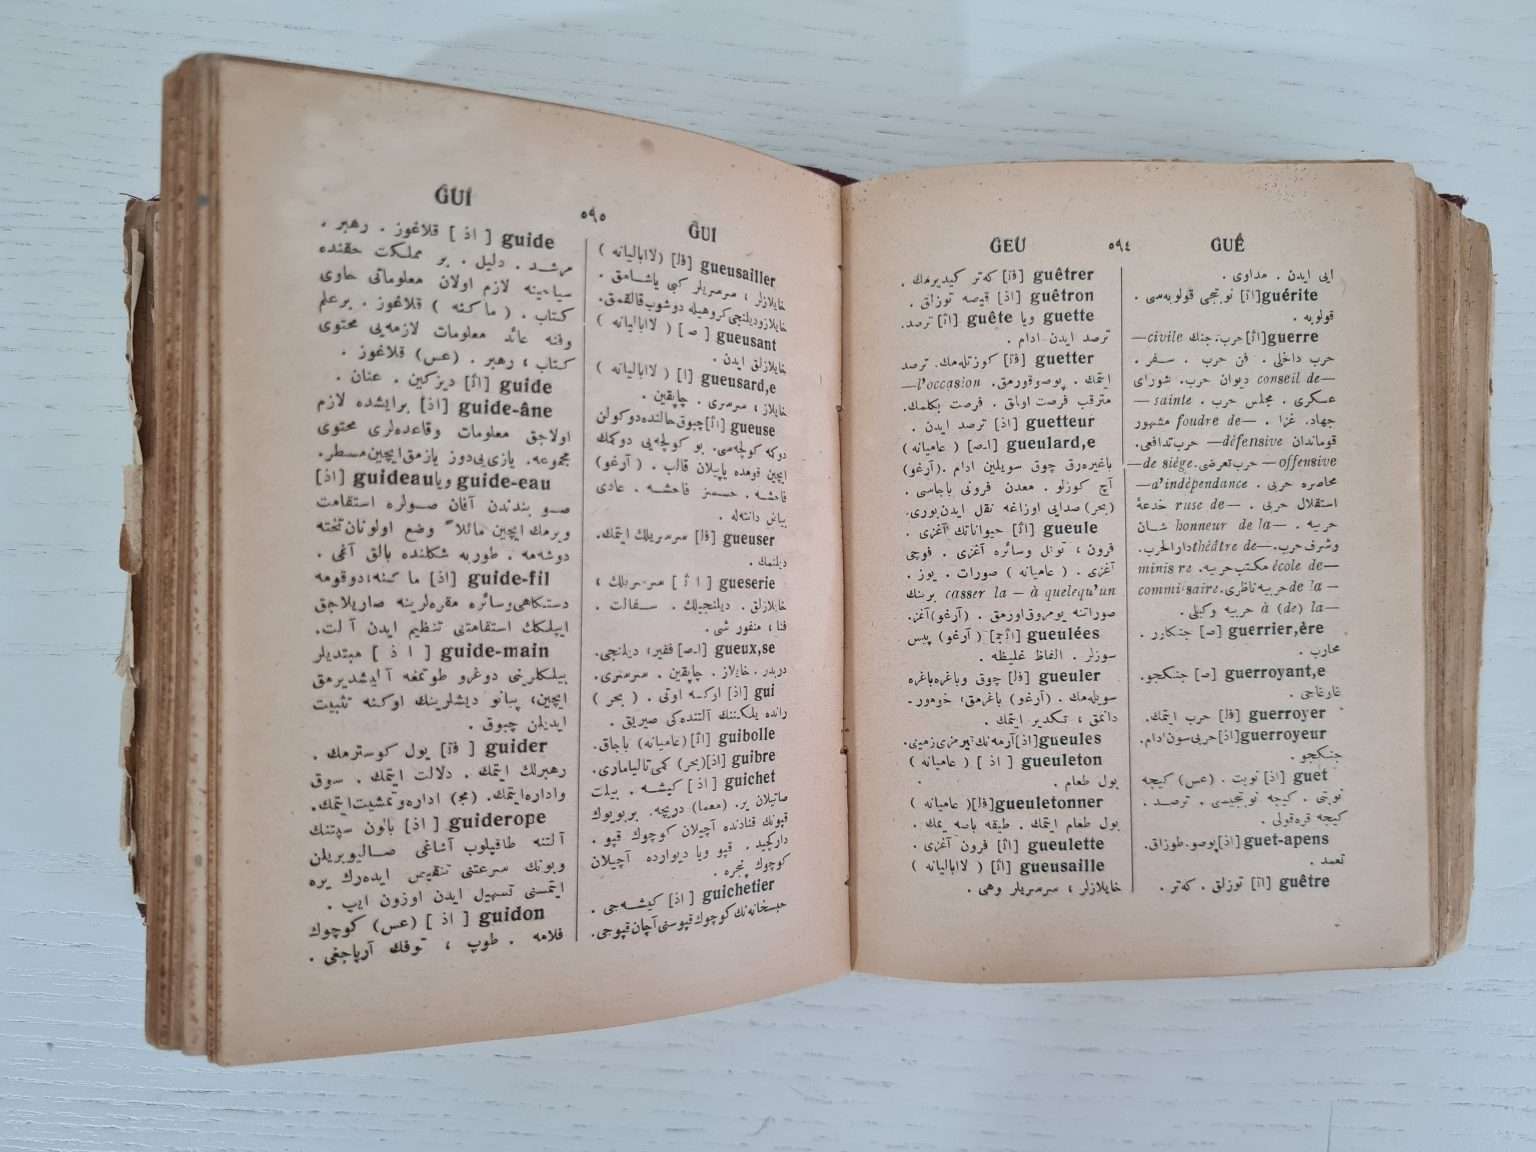 GUÊ ٥٩٤ GEU
ايى ايدن . مداوى .
guérite [اث] نوبتجى قولوبه‌سى .
قولوبه .
guerre [اث] حرب. جنك civile —
حرب داخلى . فن حرب . سفر .
conseil de— ديوان حرب. شوراى
عسكرى . مجلس حرب . sainte —
جهاد. غزا . foudre de— مشهور
قوماندان défensive— حرب تدافعى.
offensive — حرب تعرضى. de siége—
محاصره حربى . d'indépendance—
استقلال حربى . ruse de— خدعۀ
حربيه . honneur de la— شان
وشرف حرب. théâtre de— دارالحرب.
école de— مكتب حربيه. minis re
de la— حربيه ناظرى. commissaire
à (de) la— حربيه وكيلى .
guerrier,ère [ص] جنكاور .
محارب .
guerroyant,e [ص] جنكجو.
غارغاجى .
guerroyer [فل] حرب ايتمك.
guerroyeur [اذ] حربى سون ادام.
جنكجو .
guet [اذ] نوبت . (عس) كيجه
نوبتى . كيجه نوبتجيسى . ترصد .
كيجه قره‌قولى .
guet-apens [اذ] پوصو. طوزاق.
تعمد .
guêtre [اث] توزلق . كه‌تر .
guêtrer [فت] كه‌تر كيديرمك .
guêtron [اذ] قيصه توزلق .
guette ويا guête [اث] ترصد.
ترصد ايدن ادام .
guetter [فت] كوزتله‌مك. ترصد
ايتمك . پوصو قورمق. l'occasion—
مترقب فرصت اولمق . فرصت بكلمك.
guetteur [اذ] ترصد ايدن .
gueulard,e [ا.ص] (عاميانه)
باغيره‌رق چوق سويلين ادام .(آرغو)
آچ كوزلو . معدن فرونى باجاسى .
(بحر) صدايى اوزاغه نقل ايدن بورى.
gueule [اث] حيواناتك آغزى .
فرون ، تونل وسائره آغزى . قوچى
آغزى . (عاميانه) صورات . يوز .
casser la — à quelequ'un برينك
صوراتنه يومروق اورمق . (آرغو) آغز.
gueulées [اثج] (آرغو) پيس
سوزلر . الفاظ غليظه .
gueuler [فل] چوق وباغره باغره
سويله‌مك . (آرغو) باغرمق؛ خومور-
دانمق ، تكدير ايتمك .
gueules [اذ] آرمه‌نك قيرمزى زمينى.
gueuleton [اذ] (عاميانه)
بول طعام .
gueuletonner [فل] (عاميانه)
بول طعام ايتمك . طيقه باصه يمك .
gueulette [اث] فرون آغزى .
gueusaille [اث] (لاابالیانه)
خايلازلر ، سرسريلر وهى .
GUI ٥٩٥ GUI
gueusailler [فل] (لاابالیانه)
خايلازلر ، سرسريلر كبى ياشامق .
خايلاز وديلنجى كروهيله دوشوب قالقمق.
gueusant [ص] (لاابالیانه)
خايلازلق ايدن .
gueusard,e [ا] (لاابالیانه)
خايلاز ، سرسرى . چاپقين .
gueuse [اث] چبوق حالنده دوكولن
دوكه كولچه‌سى. بو كولچه‌يى دوكمك
ايچين قومده ياپيلان قالب . (آرغو)
فاحشه . حسسز فاحشه . عادى
بياض دانته‌له .
gueuser [فل] سرسريلك ايتمك.
ديلنمك .
gueserie [اث] سرسريلك ،
خايلازلق . ديلنجيلك . سفالت .
فنا ، منفور شى .
gueux,se [ا.ص] فقير؛ ديلنجى.
دربدر. خايلاز. چاپقين . سرسرى.
gui [اذ] اوكسه اوتى . (بحر)
رانده يلكننك آلتنده‌كى صيريق .
guibolle [اث] (عاميانه) باجاق.
guibre [اذ] (بحر) كمى تاليامارى.
guichet [اذ] كيشه . بيلت
صاتيلان ير. (معما) دريچه. بر بويوك
قپونك قنادنده آچيلان كوچوك قپو .
داركچيد . قپو ويا ديوارده آچيلان
كوچوك پنجره .
guichetier [اذ] كيشه‌جى .
حبسخانه‌نك كوچوك قپوسنى آچان قپوجى.
guide [اذ] قلاغوز . رهبر .
مرشد . دليل . بر مملكت حقنده
سياحينه لازم اولان معلوماتى حاوى
كتاب . (ماكنه) قلاغوز . بر علم
وفنه عائد معلومات لازمه‌يى محتوى
كتاب ، رهبر . (عس) قلاغوز .
guide [اث] ديزكين . عنان .
guide-âne [اذ] بر ايشده لازم
اولاجق معلومات وقاعده‌لرى محتوى
مجموعه. يازى يى دوز يازمق ايچين مسطر.
guide-eau ويا guideau [اذ]
صو بندندن آقان صولره استقامت
ويرمك ايچين مائلاً وضع اولونان تخته
دوشه‌مه . طوربه شكلنده بالق آغى .
guide-fil [اذ] ماكنه؛ دوقومه
دستكاهى وسائره مقره‌لرينه صاريلاجق
ايپلكك استقامتنى تنظيم ايدن آلت.
guide-main [اذ] مبتديلر
بيلكلرينى دوغرو طوتمغه آليشديرمق
ايچين، پيانو ديشلرينك اوكنه تثبيت
ايديلن چبوق .
guider [فت] يول كوسترمك .
رهبرلك ايتمك . دلالت ايتمك . سوق
واداره ايتمك. (مج) اداره وتمشيت ايتمك.
guiderope [اذ] بالون سپتنك
آلتنه طاقيلوب آشاغى صاليويريلن
وبونك سرعتنى تنقيص ايده‌رك يره
ايتمسنى تسهيل ايدن اوزون ايپ .
guidon [اذ] (عس) كوچوك
فلامه . طوپ ، توفك آرپاجغى .